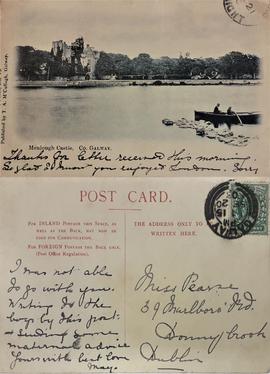 Published by T. A. McCullagh, Galway.
Menlough Castle, Co. GALWAY.
Thanks for letter received this morning
So glad to know you enjoyed London. Sorry
POST CARD.
For INLAND Postage this Space, as
well as the Back, may now be
used for Communication.
For FOREIGN Postage the Back only.
(Post Office Regulation).
THE ADDRESS ONLY TO BE
WRITTEN HERE.
GALWAY
I was not able
to go with you.
Writing to the
boys by this post
& sending some
maternal advice
Yours with best love
May.
Miss Pearse
39 Marlboro' Rd.
Donnybrook
Dublin